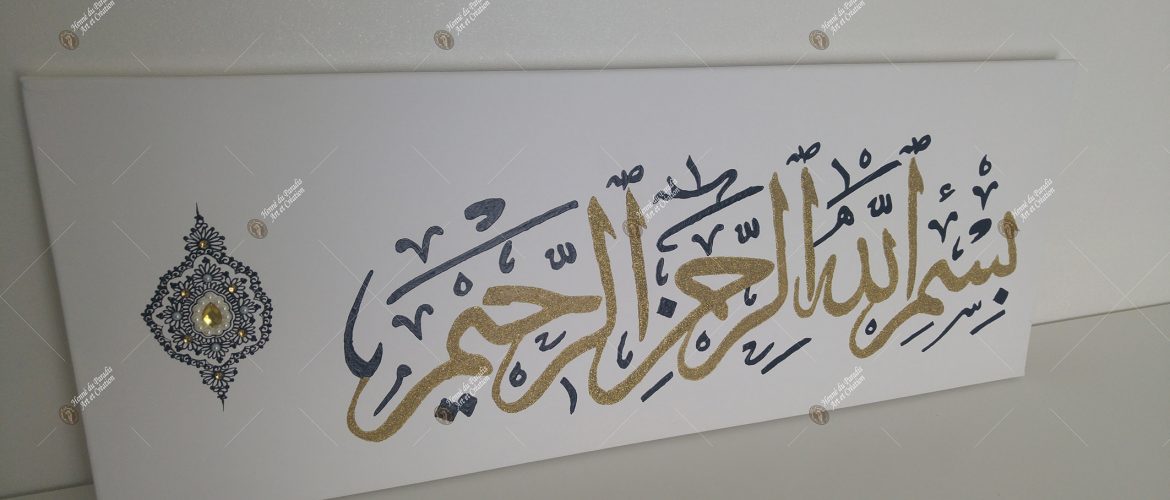 بِسْمِ ٱللَّهِ ٱلرَّحْمَٰنِ ٱلرَّحِيمِ
Henné du Paradis
Art et Création